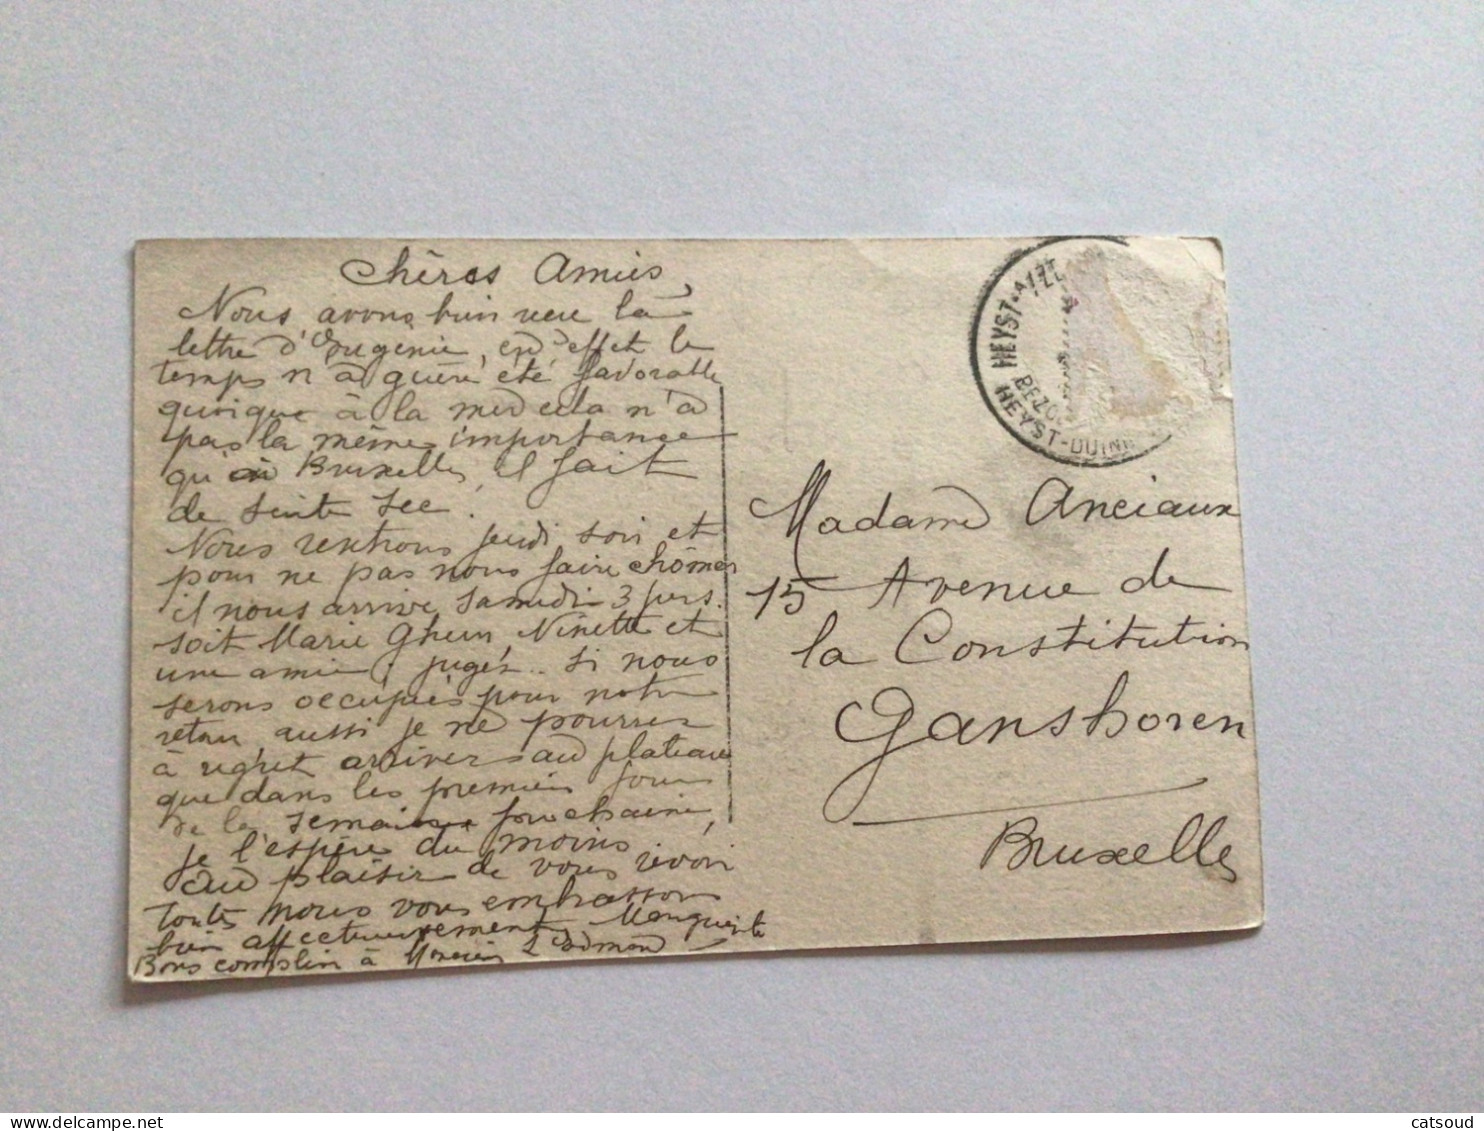 Chères Amies,
Nous avons bien reçu la
lettre d'Eugénie, en effet le
temps n'a guère été favorable
quoique à la mer cela n'a
pas la même importance
qu'à Bruxelles, il fait
de suite sec.
Nous rentrons jeudi soir et
pour ne pas nous faire chômer
il nous arrive samedi 3 pers.
soit Marie Ghem Ninette et
une amie; jugez.. si nous
serons occupées pour notre
retour aussi je ne pourrai
à regret arriver au plateau
que dans les premiers jours
de la semaine prochaine,
je l'espère du moins,
au plaisir de vous revoir
toutes nous vous embrassons
bien affectueusement Marguerite
Bons complim à Edmond
HEYST-A/ZEE
HEYST-DUIN
Madame Anciaux
15 Avenue de
la Constitution
Ganshoren
Bruxelles
catsoud